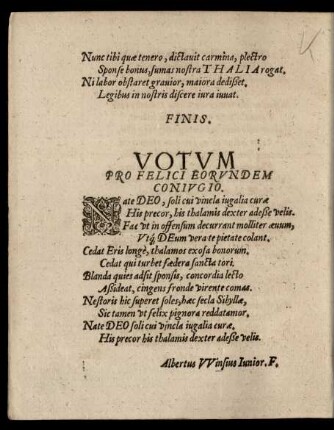 Nunc tibi quæ tenero, dictauit carmina, plectro
Sponse bonus, sumas nostra THALIA rogat.
Ni labor obstaret grauior, maiora dedisset,
Legibus in nostris discere iura iuuat.
FINIS.
VOTVM
PRO FELICI EORVNDEM
CONIVGIO.
Nate DEO, soli cui vincla iugalia curæ
His precor, his thalamis dexter adesse velis.
Fac vt in offensum decurrant molliter æuum,
Vtq́; DEum vera te pietate colant.
Cedat Eris longè, thalamos exosa bonorum.
Cedat qui turbet fædera sancta tori.
Blanda quies adsit sponsis, concordia lecto
Assideat, cingens fronde virente comas.
Nestoris hic superet soles, hæc secla Sibyllæ,
Sic tamen vt felix pignora reddat amor.
Nate DEO soli cui vincla iugalia curæ,
His precor his thalamis dexter adesse velis.
Albertus VVinsius Iunior. F.